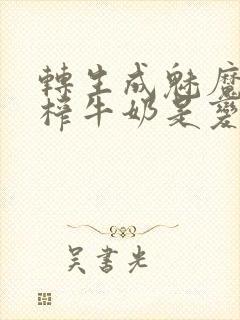 轉生成魅魔
榨牛奶是變
吴書光